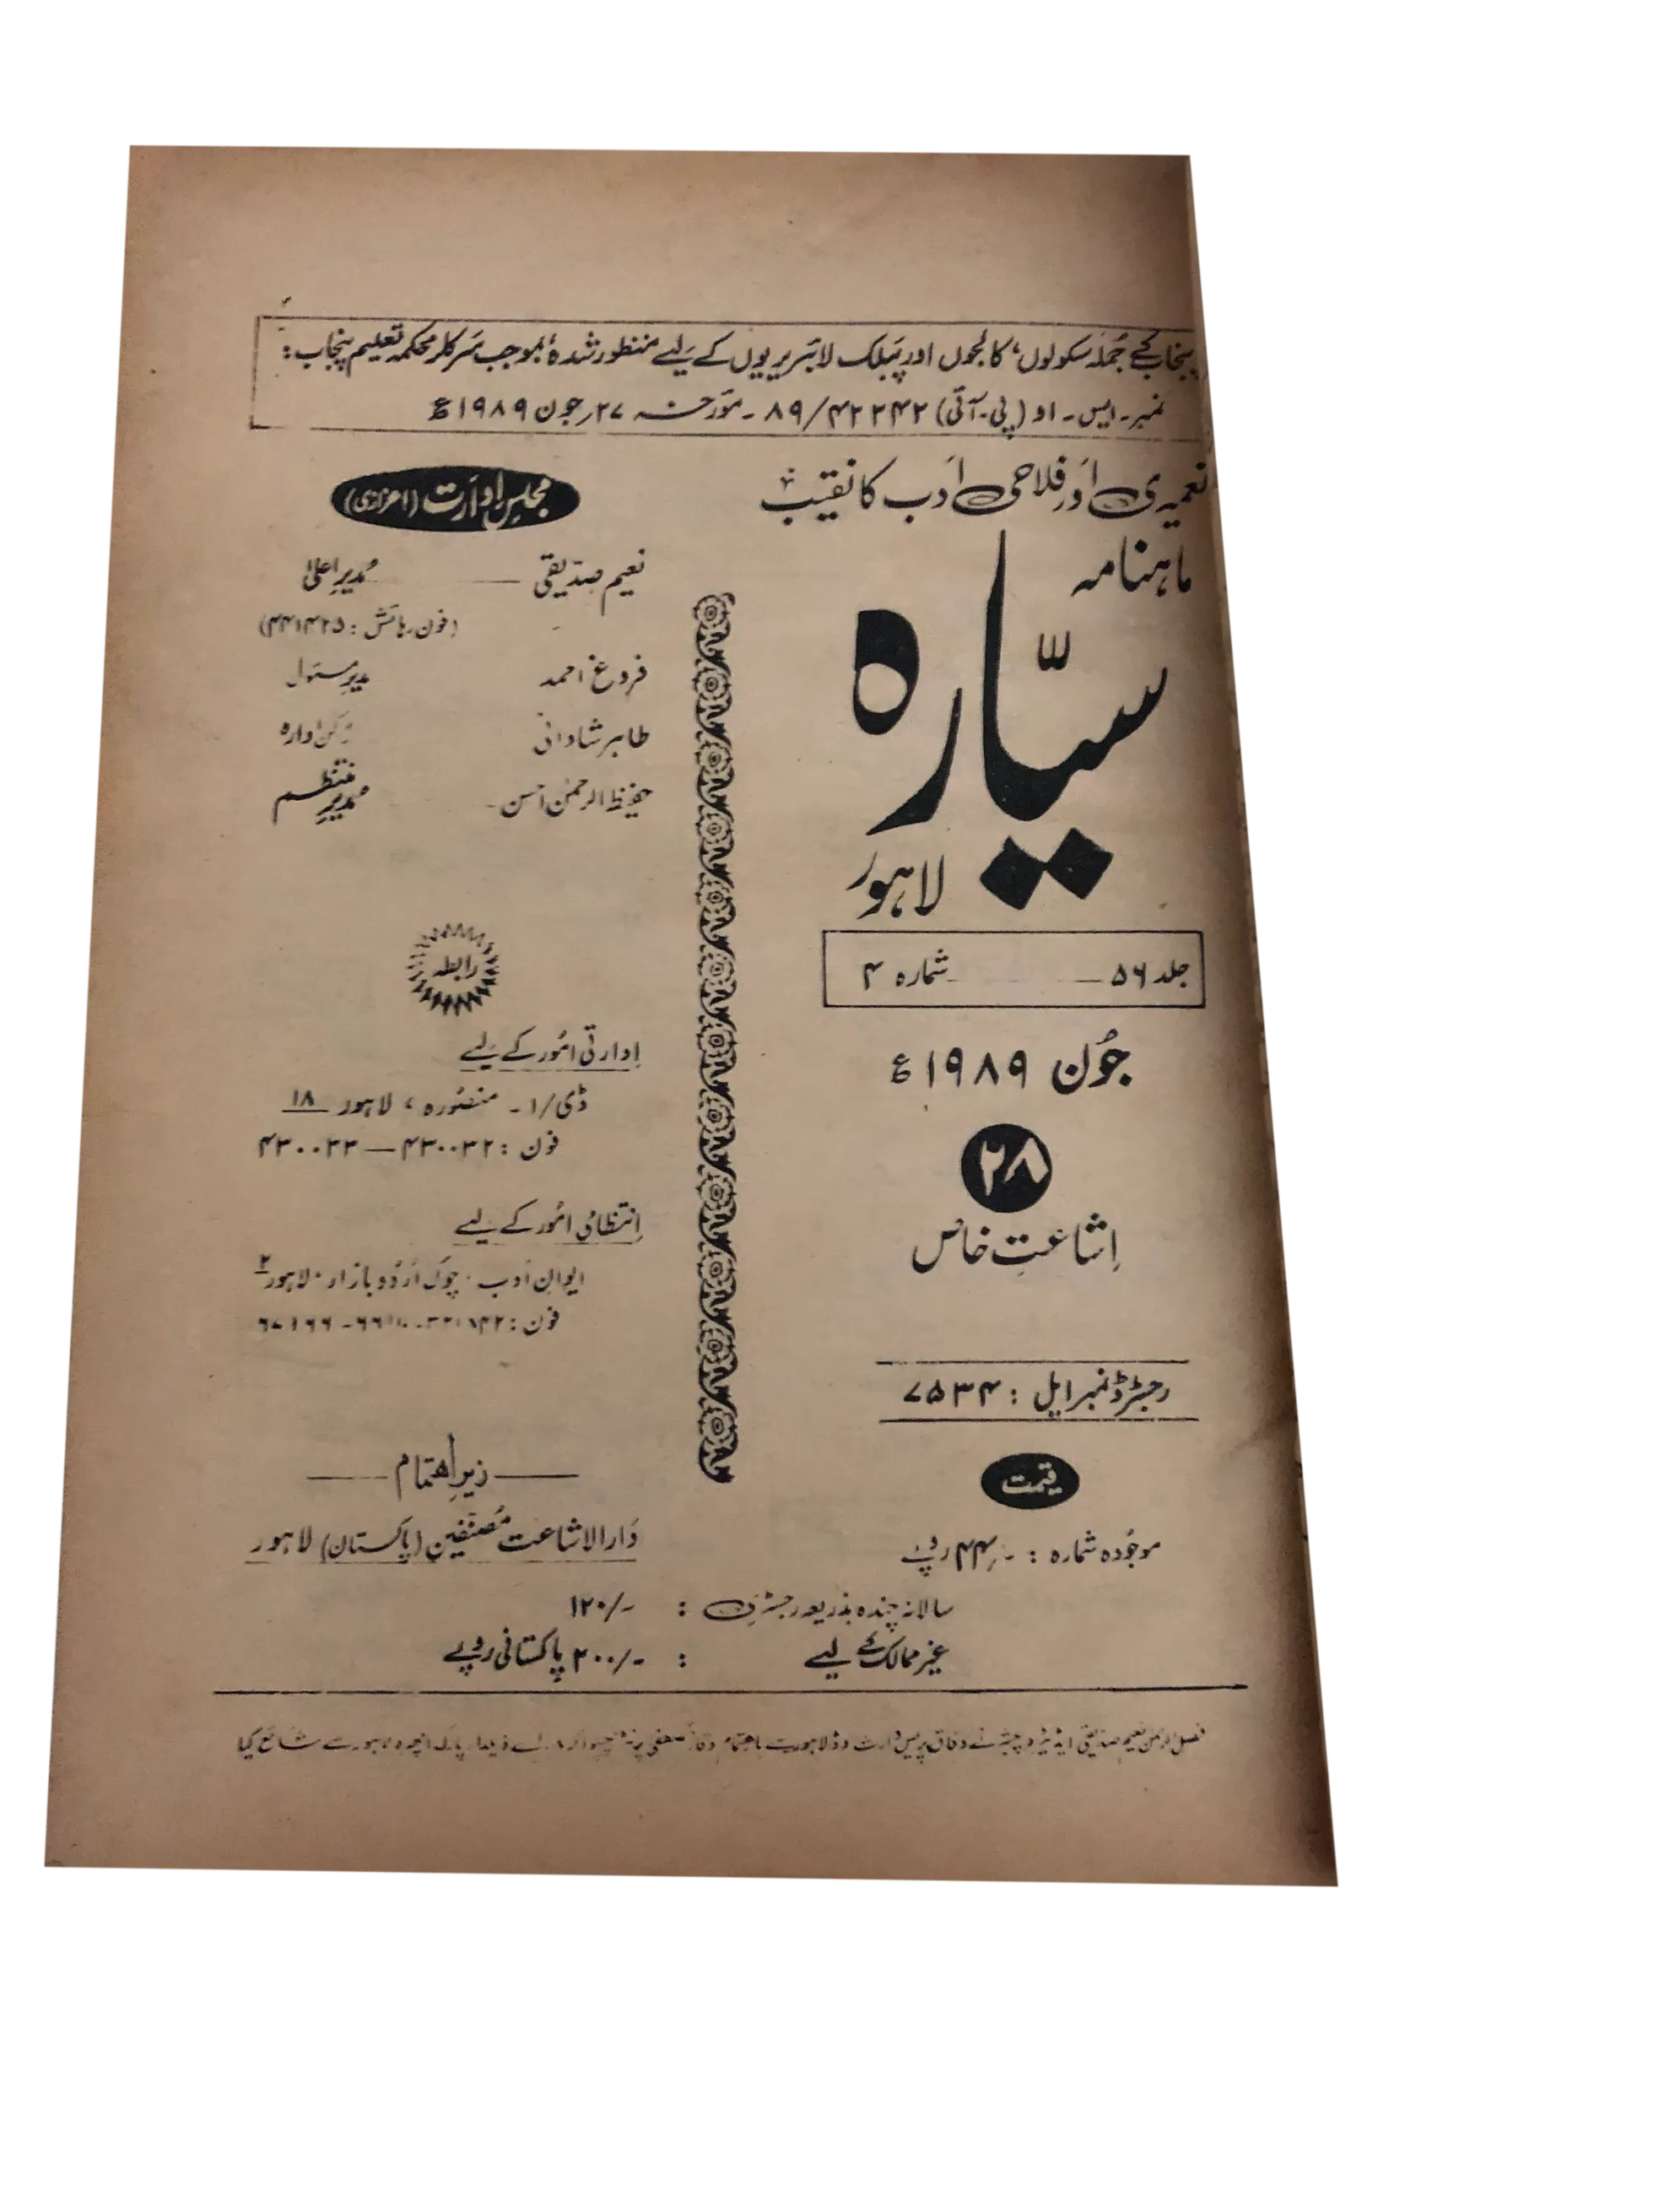 پنجاب کے جُملہ سکولوں، کالجوں اور پبلک لائبریریوں کے لیے منظور شدہ، بموجب سرکلر محکمہ تعلیم پنجاب:
نمبر۔ ایس۔ او (پی۔ آئی) ۴۲۲۴۲/۸۹ ۔ مورخہ ۲۷؍ جون ۱۹۸۹ء
تعمیری اور فلاحی ادب کا نقیب
ماہنامہ
سیّارہ
لاہور
جلد ۵۶ ——— شمارہ ۴
جُون ۱۹۸۹ء
۲۸
اِشاعتِ خاص
رجسٹرڈ نمبر ایل : ۷۵۳۴
قیمت
موجُودہ شمارہ : ۴۴/- روپے
مجلسِ اِدارت (اعزازی)
نعیم صدیقی —— مُدیرِ اعلیٰ
(فون رہائش: ۴۴۱۴۲۵)
فروغ احمد مدیرِ مسئول
طاہر شادانی رکن ادارہ
حفیظ الرحمٰن احسن مُدیرِ منتظم
رابطہ
اِدارتی امُور کے لیے
ڈی/۱۔ منصُورہ، لاہور ۱۸
فون: ۴۳۰۰۳۲ — ۴۳۰۰۳۳
اِنتظامی امُور کے لیے
ایوانِ اَدب۔ چوک اُردُو بازار۔ لاہور ۲
فون:
زیرِ اہتمام
دَارالاشاعت مُصنّفین (پاکستان) لاہور
سالانہ چندہ بذریعہ رجسٹری : ۱۲۰/-
غیر ممالک کے لیے : ۲۰۰/- پاکستانی روپے
نعیم صدیقی ایڈیٹر و پبلشر نے وفاق پریس لاہور سے باہتمام اچھرہ لاہور سے شائع کیا